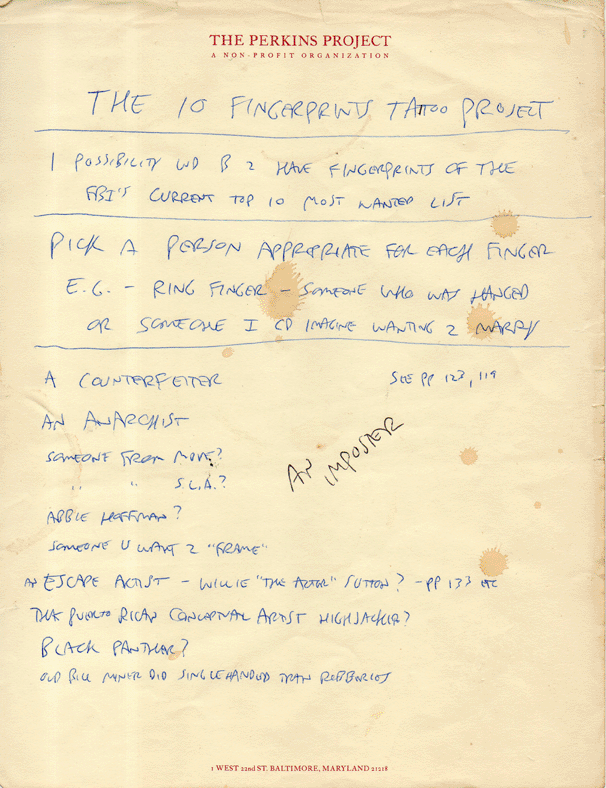 THE PERKINS PROJECT
A NON-PROFIT ORGANIZATION
THE 10 FINGERPRINTS TATTOO PROJECT
1 POSSIBILITY WD B 2 HAVE FINGERPRINTS OF THE
FBI'S CURRENT TOP 10 MOST WANTED LIST
PICK A PERSON APPROPRIATE FOR EACH FINGER
E.G. - RING FINGER - SOMEONE WHO WAS HANGED
OR SOMEONE I CD IMAGINE WANTING 2 MARRY
A COUNTERFEITER SEE PP 123, 119
AN ANARCHIST
SOMEONE FROM MOVE?
" " S.L.A.?
AN IMPOSTER
ABBIE HOFFMAN?
SOMEONE U WANT 2 "FRAME"
AN ESCAPE ARTIST - WILLIE "THE ACTOR" SUTTON? - PP 133 ETC
THE PUERTO RICAN CONCEPTUAL ARTIST HIGHJACKER?
BLACK PANTHER?
OLD BILL MINER DID SINGLEHANDED TRAIN ROBBERIES
1 WEST 22nd ST. BALTIMORE, MARYLAND 21218